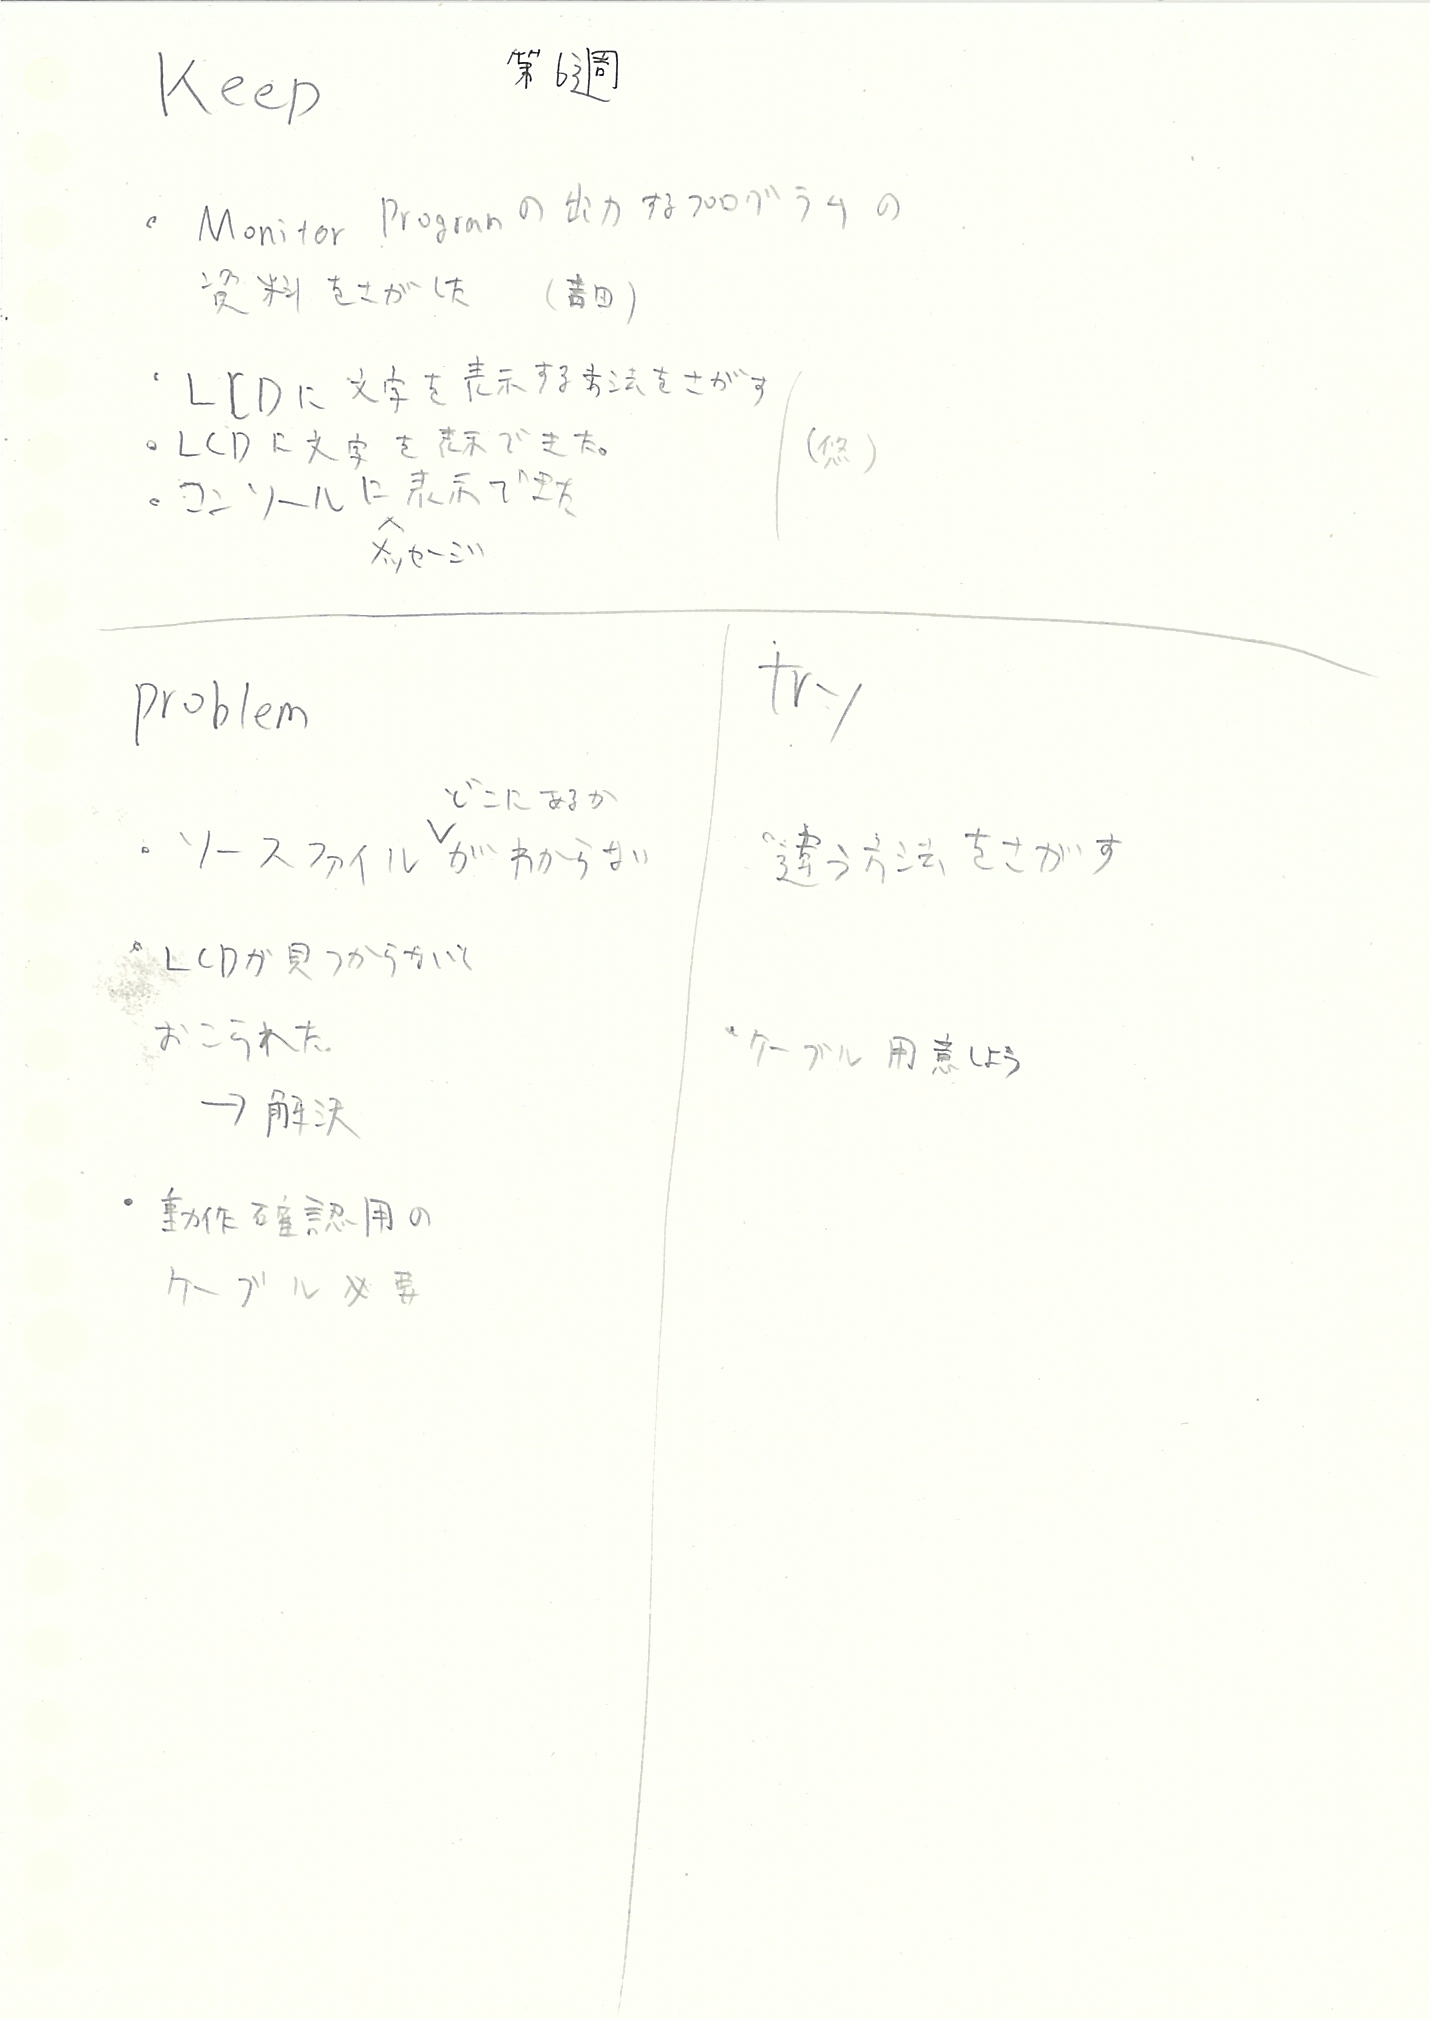 Keep
第6週
• Monitor Programの出力するプログラムの
資料をさがした (吉田)
• LCDに文字を表示する方法をさがす
• LCDに文字を表示できた。
(悠)
• コンソールに表示できた
メッセージ
problem
どこにあるか
• ソースファイルがわからない
• LCDが見つからないと
おこられた。
→ 解決
• 動作確認用の
ケーブル必要
try
• 違う方法をさがす
• ケーブル用意しよう